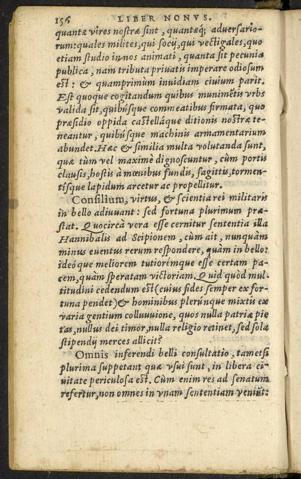 156 LIBER NONVS.
quantæ vires nostræ sint, quantæq́; aduersario-
rum: quales milites, qui socij, qui vectigales, quo
etiam studio in nos animati, quanta sit pecunia
publica, nam tributa priuatis imperare odiosum
est: & quamprimùm inuidiam ciuium parit.
Est quoque cogitandum quibus munimētis vrbs
valida sit, quibúsque commeatibus firmata, quo
præsidio oppida castelláque ditionis nostræ te-
neantur, quibúsque machinis armamentarium
abundet. Hæc & similia multa volutanda sunt,
quæ tùm vel maximè dignoscuntur, cùm portus
clausis, hostis à mœnibus fundis, sagittis, tormen-
tísque lapidum arcetur ac propellitur.
Consilium, virtus, & scientia rei militaris
in bello adiuuant: sed fortuna plurimum præ-
stat. Quocirca vera esse cernitur sententia illa
Hannibalis ad Scipionem, cùm ait, nunquàm
minus euentus rerum respondere, quàm in bello:
ideóque meliorem tutiorémque esse certam pa-
cem, quàm speratam victoriam. Quid quòd mul-
titudini cedendum est (cuius fides semper ex for-
tuna pendet) & hominibus plerúnque mixtis ex
varia gentium colluuuione, quos nulla patriæ pie
tas, nullus dei timor, nulla religio retinet, sed sola
stipendij merces allicit?
Omnis inferendi belli consultatio, tametsi
plurima suppetant quæ vsui sunt, in libera ci-
uitate periculosa est. Cùm enim res ad senatum
refertur, non omnes in vnam sententiam veniūt: